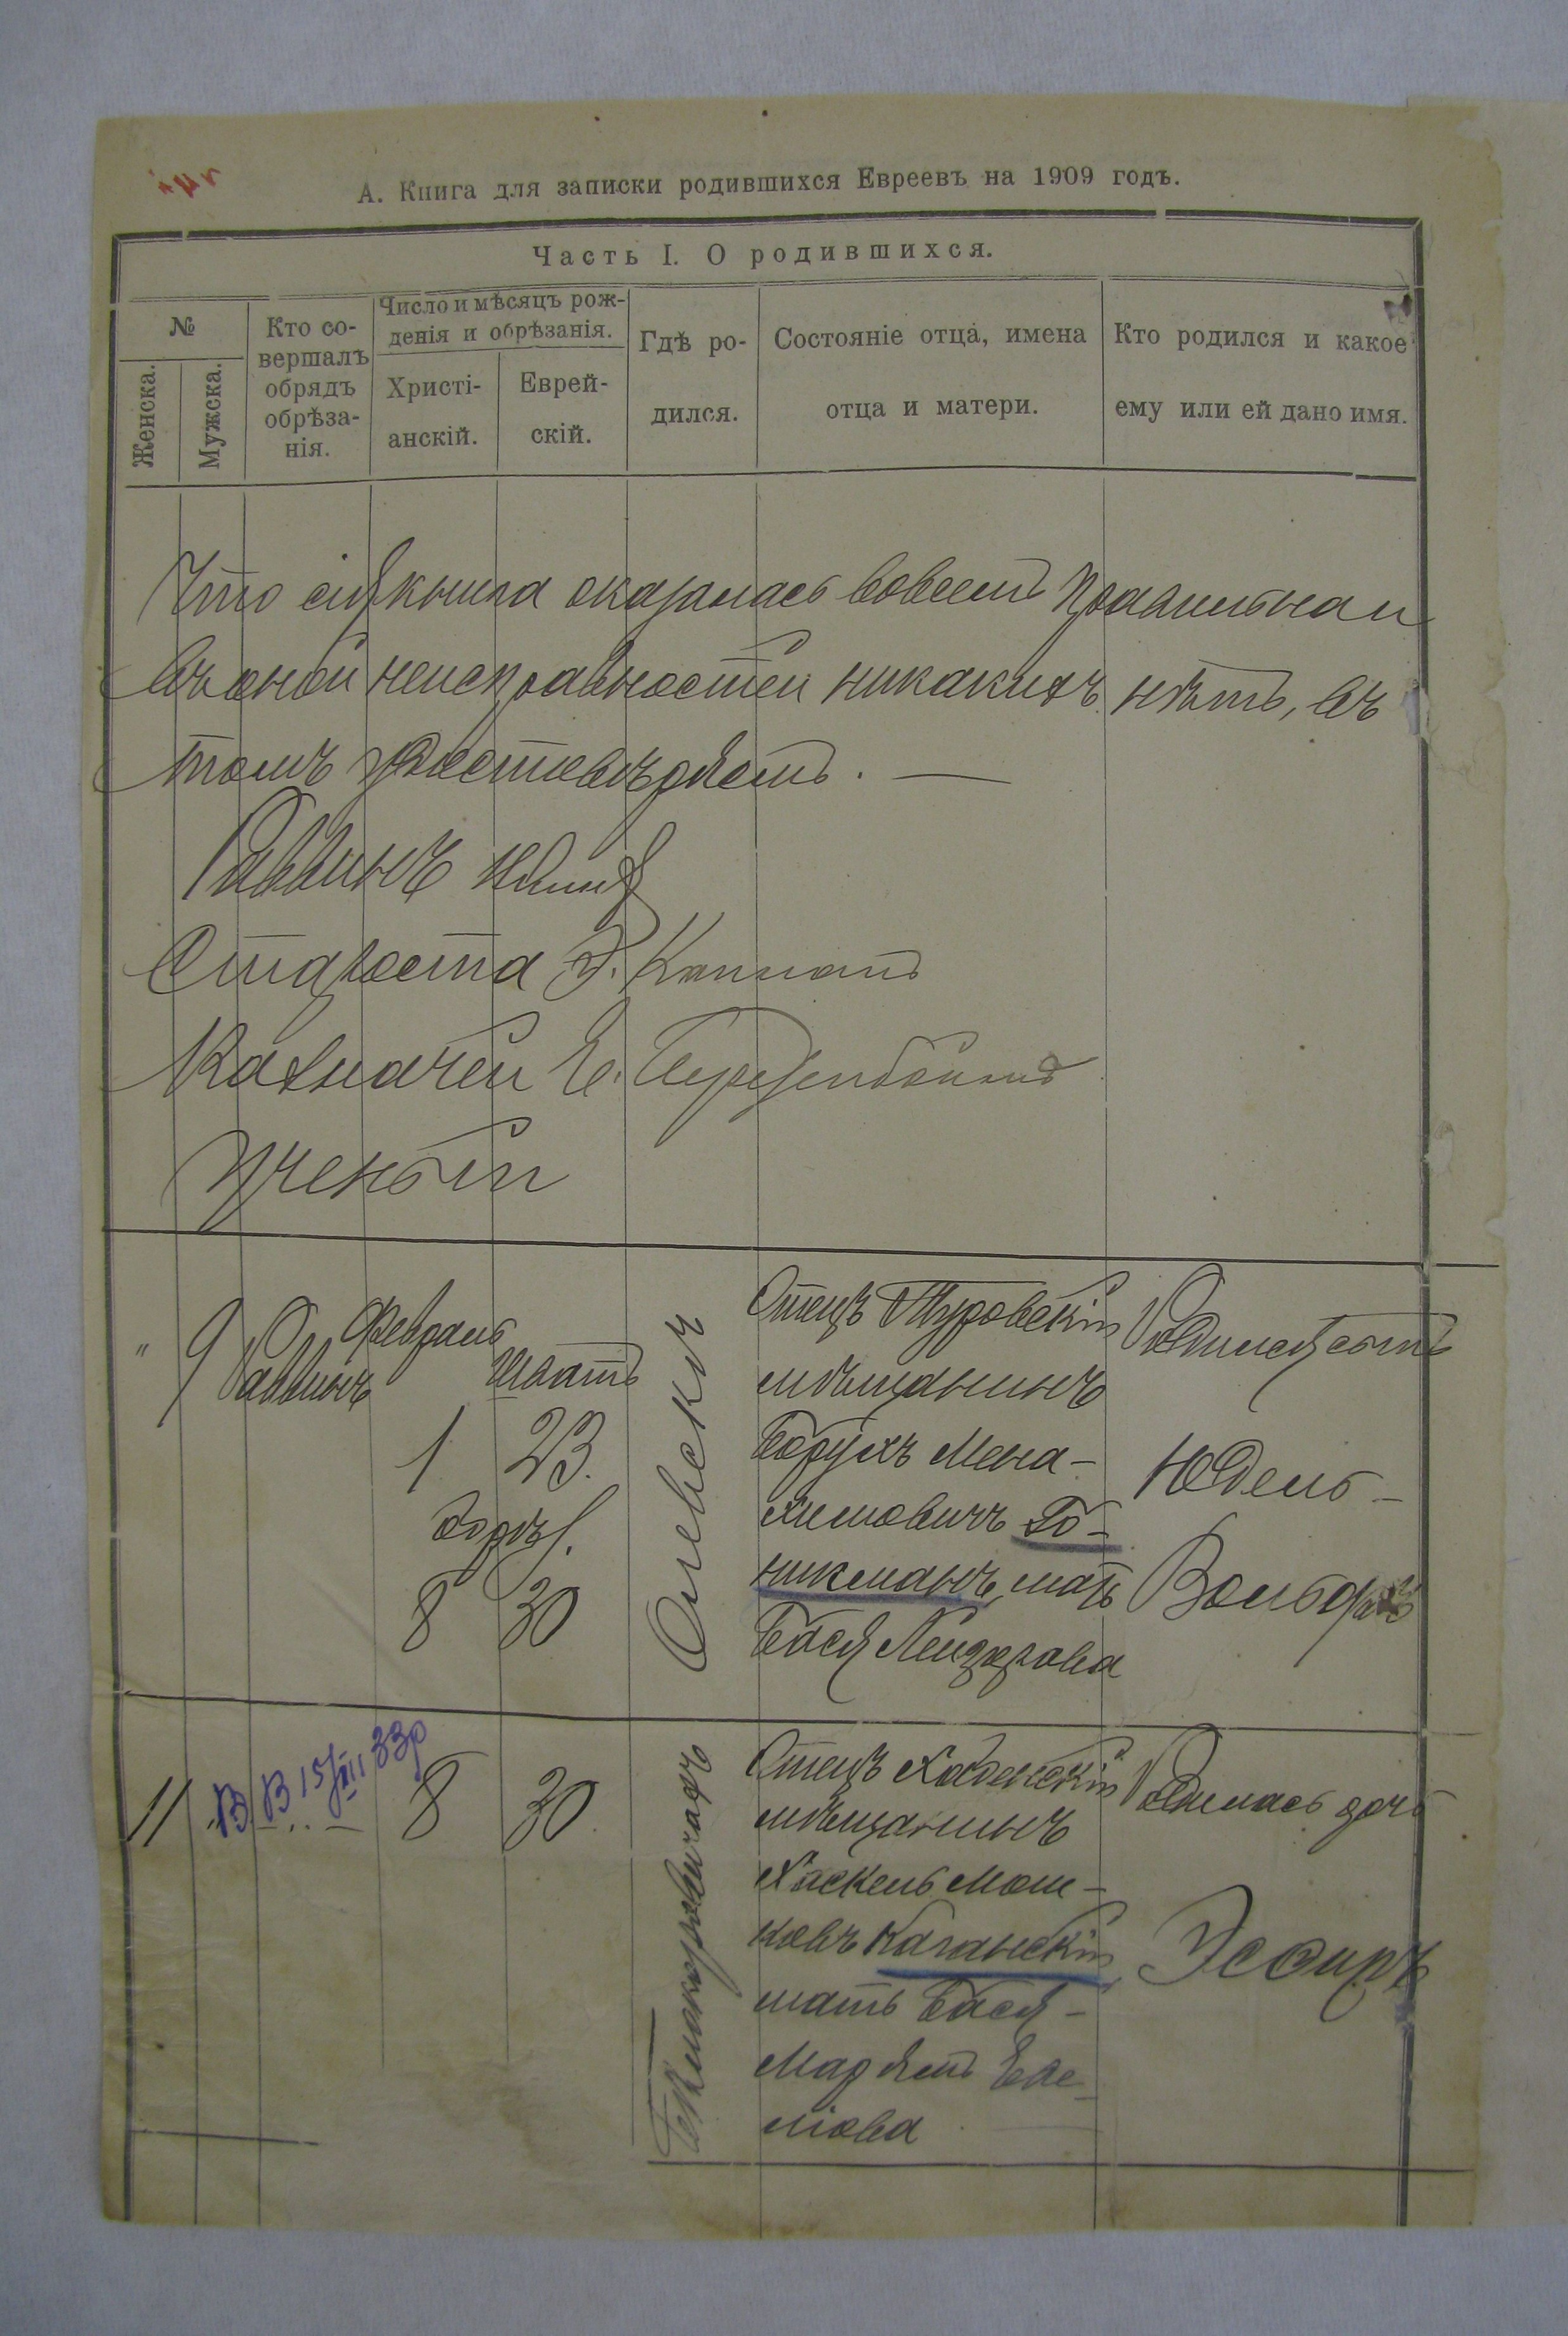 А. Книга для записки родившихся Евреевъ на 1909 годъ.
Часть I. О родившихся.
№
Женска.
Мужска.
Кто со-
вершалъ
обрядъ
обрѣза-
нія.
Число и мѣсяцъ рож-
денія и обрѣзанія.
Христі-
анскій.
Еврей-
скій.
Гдѣ ро-
дился.
Состояніе отца, имена
отца и матери.
Кто родился и какое
ему или ей дано имя.
Что сія книга оказалась вовсемъ правильна и
въ оной неисправностей никакихъ нѣтъ, въ
томъ удостовѣряемъ. —
Раввинъ
Староста
Казначей Е.
Ученый
" 9 Раввинъ
Февраль
Шватъ
1 23.
8 30
Олевскъ
Отецъ Туровскій
мѣщанинъ
Борухъ Мена-
химовичъ Го-
никманъ, мать
Бася Лейзерова
Родился сынъ
Юдель-
Вольфъ
11 8 30
В В 15/III 33р
Отецъ Хабенскій
мѣщанинъ
Хаскель Мош-
ковъ Каганскій
мать Бася-
Марьямъ
Родилась дочь
Эсѳирь